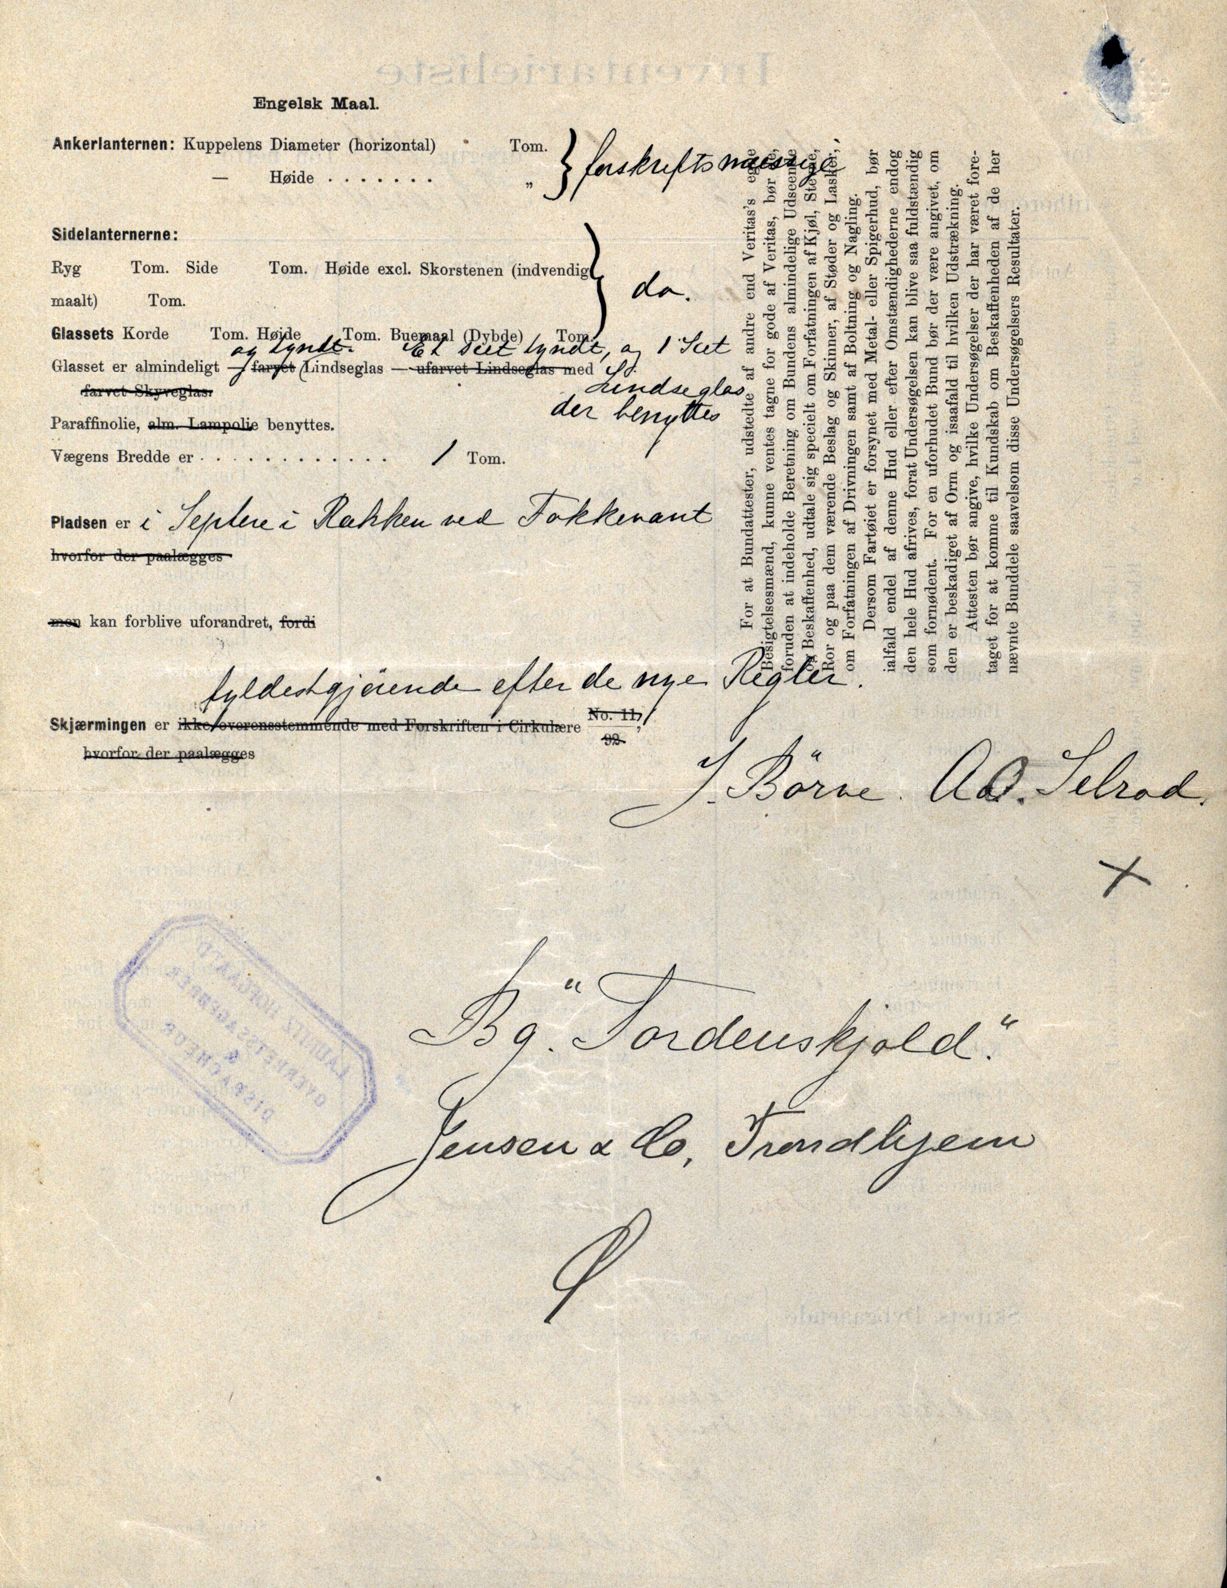 Engelsk Maal.
Ankerlanternen: Kuppelens Diameter (horizontal) Tom.
— Høide . . . . . . . „
} forskriftsmæssige
Sidelanternerne:
Ryg Tom. Side Tom. Høide excl. Skorstenen (indvendig
maalt) Tom.
} do.
Glassets Korde Tom. Høide Tom. Buemaal (Dybde) Tom.
og tyndt. Et Sæt tyndt, og 1 Sæt
Glasset er almindeligt — farvet (Lindseglas — ufarvet Lindseglas med
farvet Skyveglas.
Lindseglas
der benyttes
Paraffinolie, alm. Lampolie benyttes.
Vægens Bredde er . . . . . . . . . . . . . 1 Tom.
Pladsen er i Septere i Rækken ved Fokkevant
hvorfor der paalægges
men kan forblive uforandret, fordi
fyldestgjørende efter de nye Regler.
Skjærmingen er ikke overensstemmende med Forskriften i Cirkulære No. 11,
92.
hvorfor der paalægges
For at Bundattester, udstedte af andre end Veritas's egne
Besigtelsesmænd, kunne ventes tagne for gode af Veritas, bør de,
foruden at indeholde Beretning om Bundens almindelige Udseende
og Beskaffenhed, udtale sig specielt om Forfatningen af Kjøl, Stevne,
Ror og paa dem værende Beslag og Skinner, af Støder og Lasker,
om Forfatningen af Drivningen samt af Boltning og Nagling.
Dersom Fartøiet er forsynet med Metal- eller Spigerhud, bør
ialfald endel af denne Hud eller efter Omstændighederne endog
den hele Hud afrives, forat Undersøgelsen kan blive saa fuldstændig
som fornødent. For en uforhudet Bund bør der være angivet, om
den er beskadiget af Orm og isaafald til hvilken Udstrækning.
Attesten bør angive, hvilke Undersøgelser der har været fore-
taget for at komme til Kundskab om Beskaffenheden af de her
nævnte Bunddele saavelsom disse Undersøgelsers Resultater.
J. Börve. Ad. Selrod.
LAURITZ HORGAARD
OVERRETSSAGFØRER
&
DISPACHEUR
Bg. "Tordenskjold".
Jensen & Co, Trondhjem